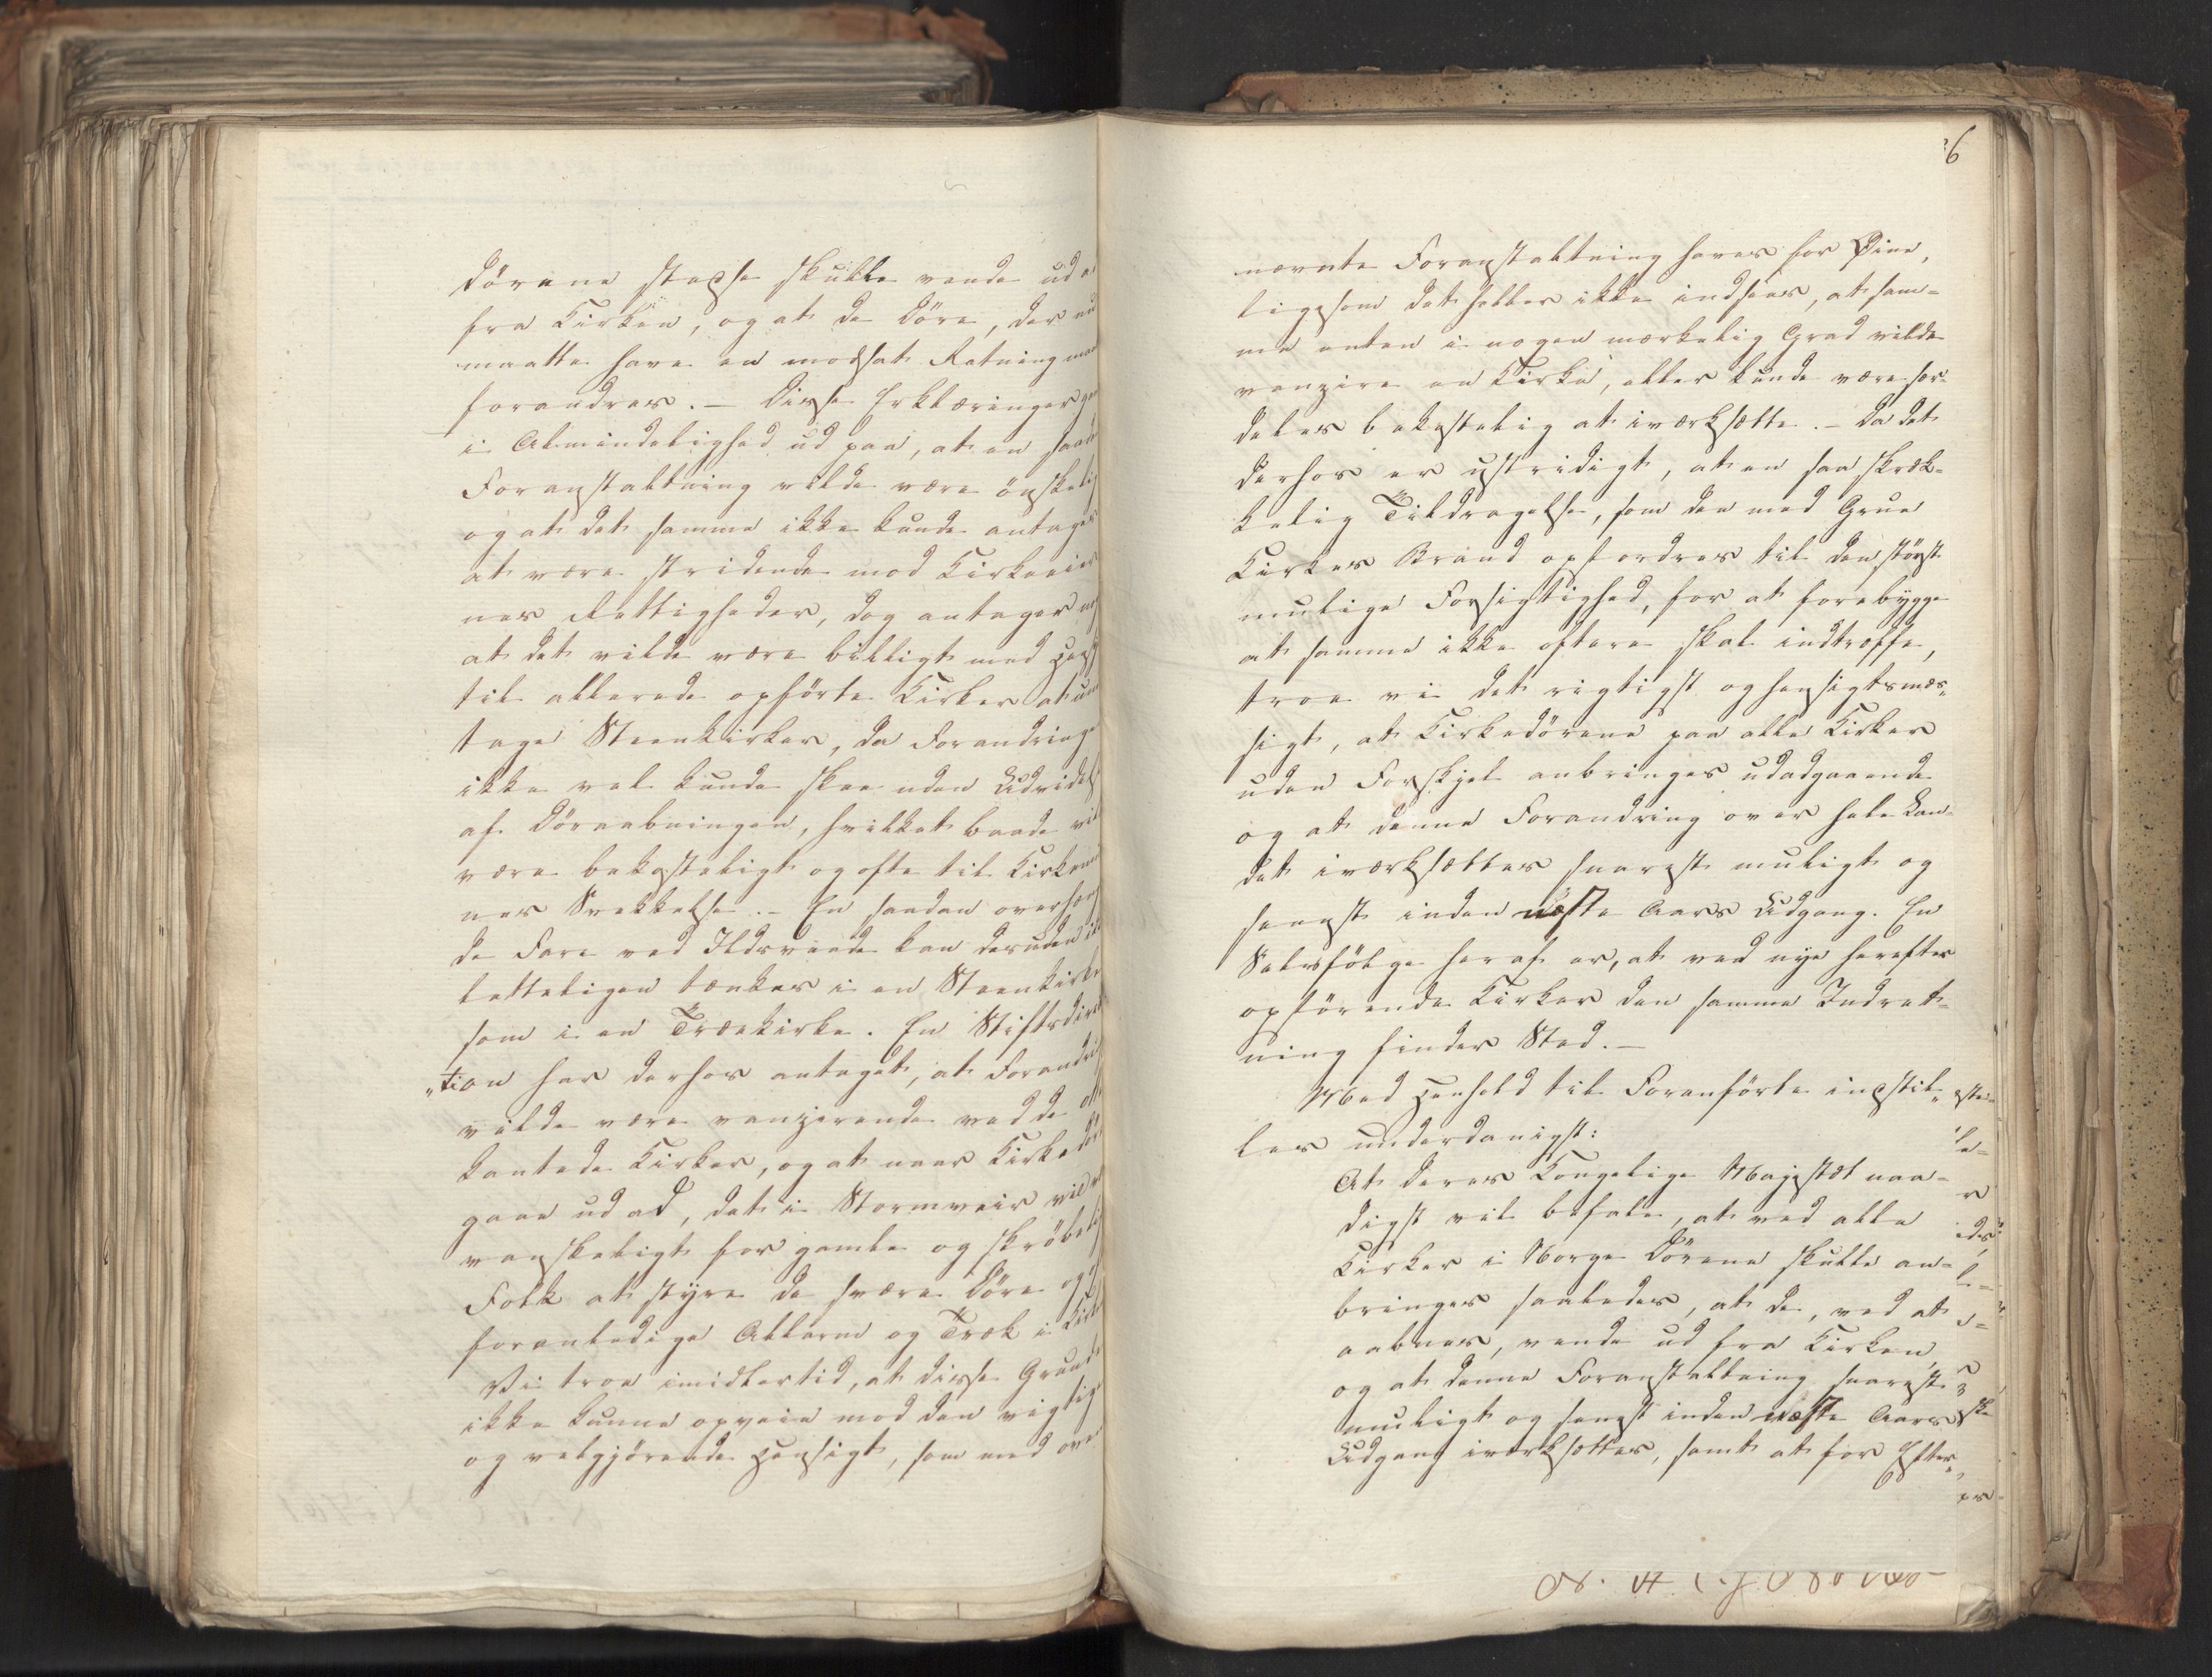 Dørene stedse skulle vende ud a
fra Kirken, og at de Døre, der nu
maatte have en modsat Retning maa
forandres. – Disse Erklæringer gaa
i Almindelighed ud paa, at en saad
Foranstaltning vilde være ønskelig
og at det samme ikke kunde antages
at være stridende mod Kirkeeier
nes Rettigheder, dog antager
at det vilde være billigt med Hens
til allerede opførte Kirker at und
tage Steenkirker, da Forandringe
ikke vel kunde skee uden Udvidels
af Døraabningen, hvilket baade vil
være bekosteligt og ofte til Kirkemu
nes Svækkelse. – En saadan overhæn
de Fare ved Ildsvaade kan desuden ik
letteligen tænkes i en Steenkirke
som i en Trækirke. En Stiftsdirek
„tion har derhos antaget, at Forandri
vilde være vanzirende ved de ott
kantede Kirker, og at naar Kirkedør
gaae udad, det i Stormveir vil v
vanskeligt for gamle og skrøbeli
Folk at styre de svære Døre og
foranledige Allarm og Træk i Kirke
Vi troe imidlertid, at disse Grunde
ikke kunne opveie mod den vigtig
og velgjørende Hensigt, som med oven
6
nævnte Foranstaltning haves for Øine,
ligesom det heller ikke indsees, at sam-
me enten i nogen mærkelig Grad vilde
vanzire en Kirke, eller kunde være sær-
deles bekostelig at iværksætte. – Da det
derhos er ustridigt, at en saa skræk-
kelig Tildragelse, som den med Grue
Kirkes Brand opfordrer til den størst
mulige Forsigtighed, for at forebygge
at samme ikke oftere skal indtræffe,
troe vi det rigtigst og hensigtsmæs„
sigt, at Kirkedørene paa alle Kirker
uden Forskjel anbringes udadgaaende
og at denne Forandring over hele Lan-
det iværksættes snarest muligt og
senest inden næste Aars Udgang. En
Selvfølge heraf er, at ved nye herefter
opførende Kirker den samme Indret-
ning finder Sted. –
Med Henhold til Foranførte indstil„
les underdanigst:
At Deres Kongelige Majestæt naa-
digst vil befale, at ved alle
Kirker i Norge Dørene skulle an-
bringes saaledes, at de, ved at
aabnes, vende ud fra Kirken,
og at denne Foranstaltning snarest
muligt og senest inden næste Aars
Udgang iværksættes, samt at for Efter„